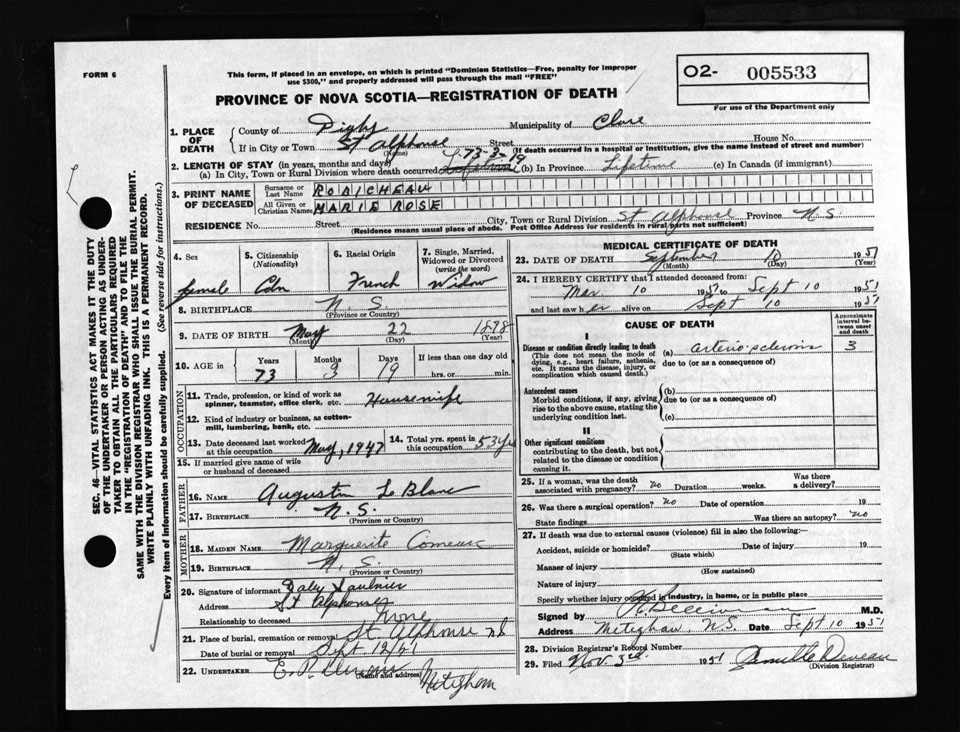 FORM 6
This form, if placed in an envelope, on which is printed "Dominion Statistics—Free, penalty for improper
use $300," and properly addressed will pass through the mail "FREE"
O2- 005533
For use of the Department only
PROVINCE OF NOVA SCOTIA—REGISTRATION OF DEATH
1. PLACE OF DEATH { County of Digby Municipality of Clare
If in City or Town St Alphonse Street House No.
(Name) (If death occurred in a hospital or institution, give the name instead of street and number)
73-3-19
2. LENGTH OF STAY (in years, months and days)
(a) In City, Town or Rural Division where death occurred Lifetime (b) In Province Lifetime (c) In Canada (if immigrant)
3. PRINT NAME OF DECEASED { Surname or Last Name ROBICHEAU
All Given or Christian Names MARIE ROSE
RESIDENCE No. Street City, Town or Rural Division St Alphonse Province N.S.
(Residence means usual place of abode. Post Office Address for residents in rural parts not sufficient)
4. Sex female
5. Citizenship (Nationality) Cdn
6. Racial Origin French
7. Single, Married, Widowed or Divorced (write the word) Widow
8. BIRTHPLACE N.S.
(Province or Country)
9. DATE OF BIRTH May 22 1878
(Month) (Day) (Year)
10. AGE in { Years 73 Months 3 Days 19 If less than one day old hrs. or min.
OCCUPATION
11. Trade, profession, or kind of work as spinner, teamster, office clerk, etc. Housewife
12. Kind of industry or business, as cotton-mill, lumbering, bank, etc.
13. Date deceased last worked at this occupation May, 1947
14. Total yrs. spent in this occupation 53 yrs
15. If married give name of wife or husband of deceased
FATHER
16. NAME Augustin Le Blanc
17. BIRTHPLACE N.S.
(Province or Country)
MOTHER
18. MAIDEN NAME Marguerite Comeau
19. BIRTHPLACE N.S.
(Province or Country)
20. Signature of informant Saulnier
Address St Alphonse
Relationship to deceased none
21. Place of burial, cremation or removal St. Alphonse NS
Date of burial or removal Sept. 12/51
22. UNDERTAKER E. P. Meteghan
(Name and address)
MEDICAL CERTIFICATE OF DEATH
23. DATE OF DEATH September 10 1951
(Month) (Day) (Year)
24. I HEREBY CERTIFY that I attended deceased from:
Mar 10 1951 to Sept 10 1951
and last saw her alive on Sept 10 1951
CAUSE OF DEATH
Approximate interval between onset and death
I
Disease or condition directly leading to death (a) arterio-sclerosis 3
(This does not mean the mode of dying, e.g., heart failure, asthenia, etc. It means the disease, injury, or complication which caused death.)
due to (or as a consequence of)
Antecedent causes (b)
Morbid conditions, if any, giving rise to the above cause, stating the underlying condition last.
due to (or as a consequence of)
(c)
II
Other significant conditions
contributing to the death, but not
related to the disease or condition
causing it.
25. If a woman, was the death associated with pregnancy? no Duration weeks. Was there a delivery?
26. Was there a surgical operation? no Date of operation 19
State findings Was there an autopsy? no
27. If death was due to external causes (violence) fill in also the following:
Accident, suicide or homicide? Date of injury 19
(State which)
Manner of injury
(How sustained)
Nature of injury
Specify whether injury occurred in industry, in home, or in public place
Signed by M.D.
Address Meteghan, N.S. Date Sept 10 1951
28. Division Registrar's Record Number
29. Filed Nov 3rd. 1951 Camille Deveau
(Division Registrar)
SEC. 46—VITAL STATISTICS ACT MAKES IT THE DUTY
OF THE UNDERTAKER OR PERSON ACTING AS UNDER-
TAKER TO OBTAIN ALL THE PARTICULARS REQUIRED
IN THE "REGISTRATION OF DEATH" AND TO FILE THE
SAME WITH THE DIVISION REGISTRAR WHO SHALL ISSUE THE BURIAL PERMIT.
WRITE PLAINLY WITH UNFADING INK. THIS IS A PERMANENT RECORD.
Every item of information should be carefully supplied. (See reverse side for instructions.)